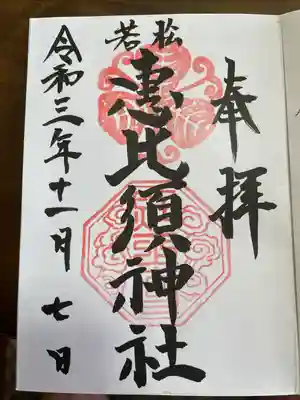 奉拝
若松
恵比須神社
令和三年十一月七日